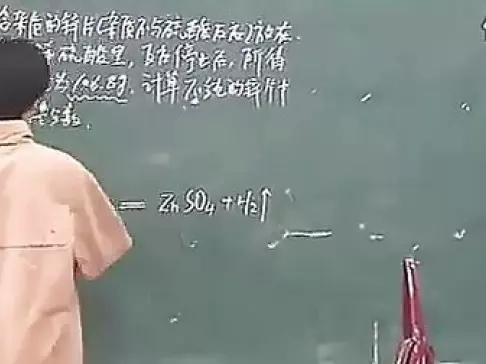 杂质的锌片(杂质不与硫酸反应)放在
硫酸里,反应停止后,所得
为106.8g.计算不纯的锌片中
数.
= ZnSO4 + H2↑